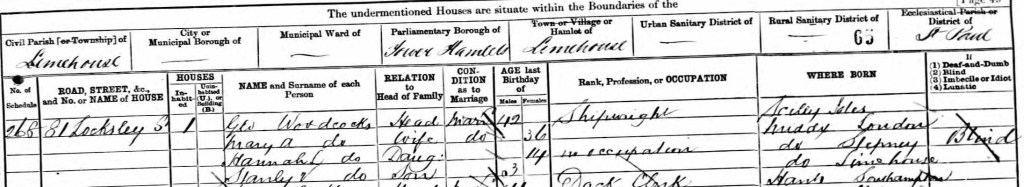 Page 45
The undermentioned Houses are situate within the Boundaries of the
Civil Parish [or Township] of
Limehouse
City or Municipal Borough of
Municipal Ward of
Parliamentary Borough of
Tower Hamlets
Town or Village or Hamlet of
Limehouse
Urban Sanitary District of
Rural Sanitary District of
65
Ecclesiastical Parish or District of
St Paul
No. of Schedule
ROAD, STREET, &c., and No. or NAME of HOUSE
HOUSES
Inhabited
Uninhabited (U.), or Building (B.)
NAME and Surname of each Person
RELATION to Head of Family
CONDITION as to Marriage
AGE last Birthday of
Males
Females
Rank, Profession, or OCCUPATION
WHERE BORN
If
(1) Deaf-and-Dumb
(2) Blind
(3) Imbecile or Idiot
(4) Lunatic
268 81 Locksley St 1 Geo Woodcocks Head Mar 42 Shipwright Scilly Isles
Mary A do Wife do 36 Middx London
Hannah L do Daug: 14 no occupation do Stepney Blind
Stanly do Son 3 do Limehouse
Dock Clerk Hants Southampton